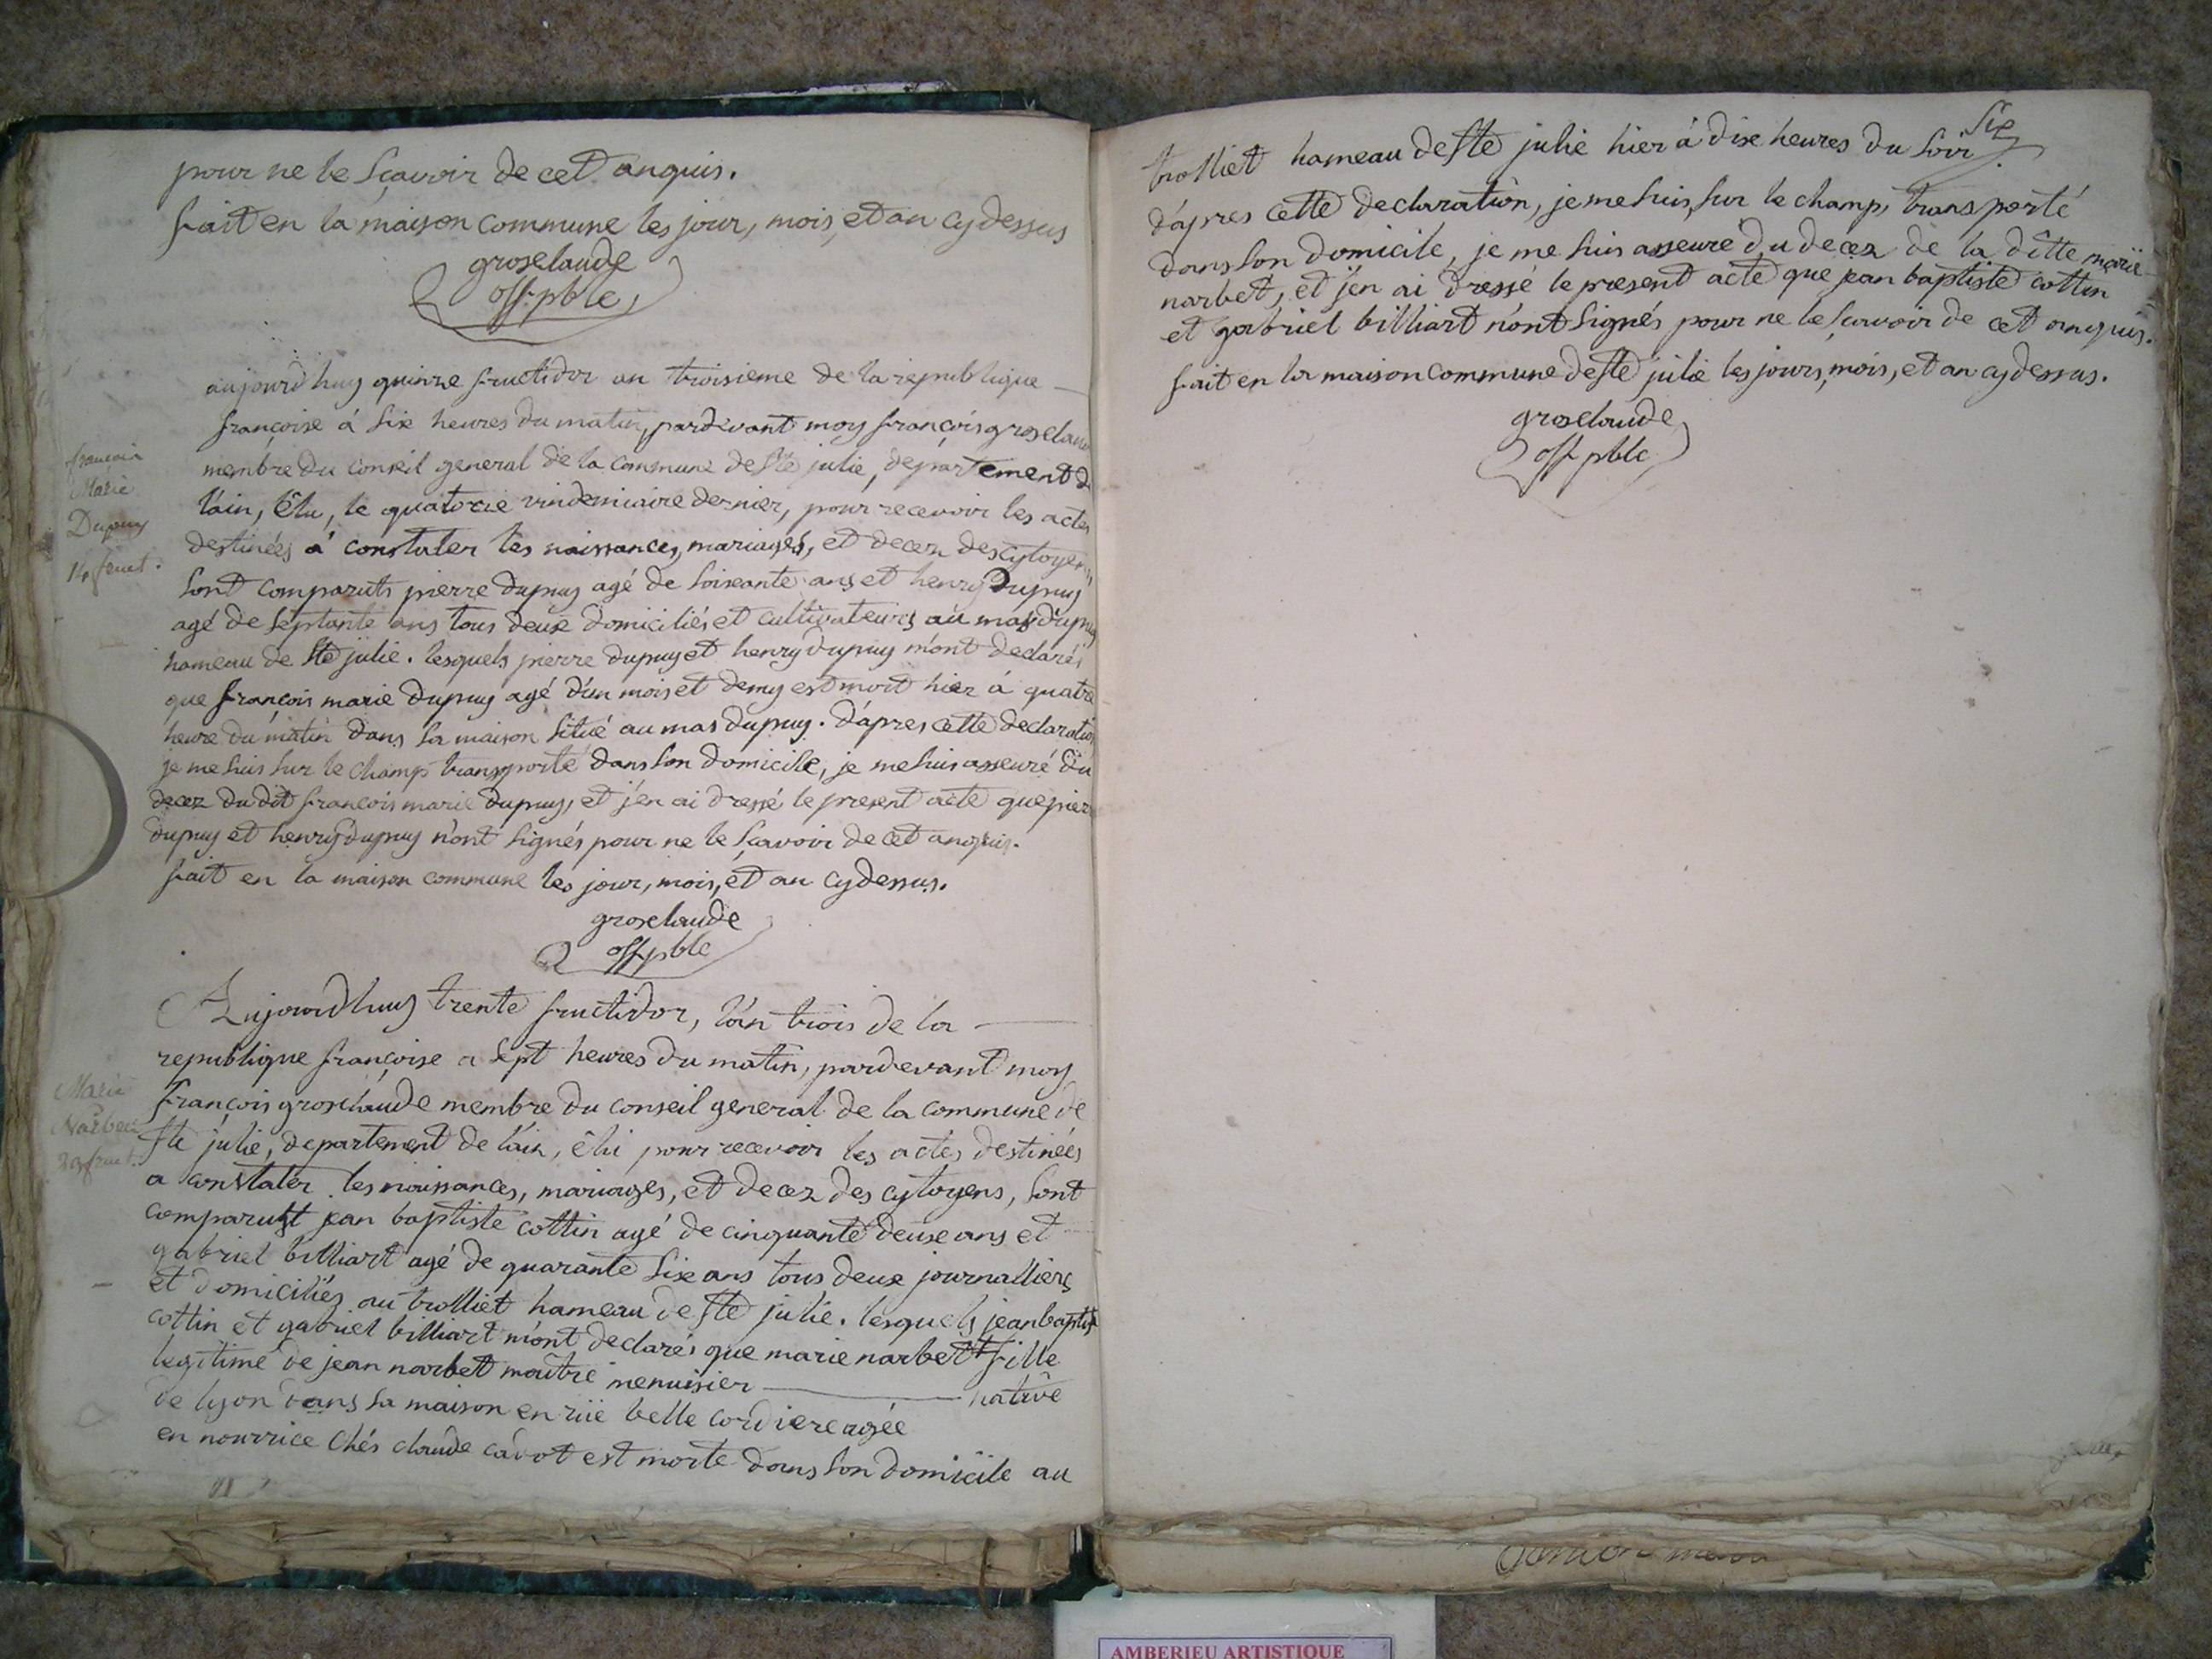 pour ne le sçavoir de cet anquis.
fait en la maison commune les jour, mois, et an cy dessus
groselaude
off. pble
aujourdhuy quinze fructidor an troisieme de la republique
françoise à six heures du matin, pardevant moy françois groselaude
membre du conseil general de la commune de ste julie, departement de
l'ain, êlu, le quatorze vindemiaire dernier, pour recevoir les actes
destinées à constater les naissances, mariages, et decez des cytoyens
sont comparuts pierre dupuy agé de soixante ans et henry Dupuy
agé de septante ans tous deux domiciliés et cultivateurs au mas dupuy
hameau de Ste julie. lesquels pierre dupuy et henry dupuy m'ont declarés
que françois marie dupuy agé d'un mois et demy est mort hier à quatre
heure du matin dans sa maison situé au mas dupuy. d'apres cette declaration
je me suis sur le champ transporté dans son domicile, je me suis asseuré du
decez du dit françois marie dupuy, et j'en ai dressé le present acte que pierre
dupuy et henry dupuy n'ont signés pour ne le sçavoir de cet anquis.
fait en la maison commune les jour, mois, et an cy dessus.
groselaude
off pble
françois
Marie
Dupuy
14 fruct.
Aujourdhuy trente fructidor, l'an trois de la
republique françoise a sept heures du matin, pardevant moy
françois groselaude membre du conseil general de la commune de
ste julie, departement de l'ain, êlu pour recevoir les actes destinées
a constater les naissances, mariages, et decez des cytoyens, sont
comparust jean baptiste cottin agé de cinquante deux ans et
gabriel billiart agé de quarante six ans tous deux journalliers
et domiciliés au trolliet hameau de ste julie. lesquels jean baptiste
cottin et gabriel billiart m'ont declarés que marie narbett fille
legitime de jean narbet maitre menuisier native
de lyon dans sa maison en rüe belle cordiere agée
en nourrice chés claude cavot est morte dans son domicile au
Marie
Narbet
29 fruct.
trolliet hameau de ste julie hier à dix heures du soir six
d'apres cette declaration, je me suis sur le champ transporté
dans son domicile, je me suis asseuré du decez de la ditte marie
narbet, et j'en ai dressé le present acte que jean baptiste cottin
et gabriel billiart n'ont signés pour ne le sçavoir de cet anquis.
fait en la maison commune de ste julie les jours, mois, et an cy dessus.
groselaude
off pble
AMBERIEU ARTISTIQUE